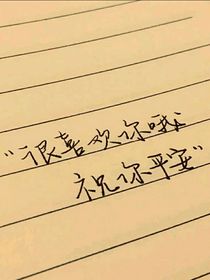 "很喜欢你哦
祝你平安"